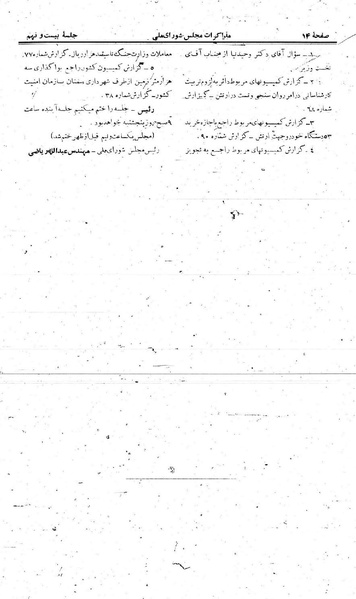 صفحهٔ ۱۴
مذاکرات مجلس شورای ملی
جلسهٔ بیست و نهم
سؤال آقای دکتر وحیدنیا از جناب آقای
نخست وزیر.
۲ - گزارش کمیسیونهای مربوط دائر به لزوم تربیت
کارشناسانی در امر روان سنجی و تست در ارتش - گزارش
شماره ۶۸
۳ - گزارش کمیسیونهای مربوط راجع باجازه خرید
۵۳ دستگاه خودرو جهت ارتش - گزارش شماره ۹۰
۴ - گزارش کمیسیونهای مربوط راجع به تجویز
معاملات وزارت جنگ تا سیصد هزار ریال - گزارش شماره ۷۷
۵ - گزارش کمیسیون کشور راجع بواگذاری سه
هزار متر زمین از طرف شهرداری سمنان سازمان امنیت
کشور - گزارش شماره ۳۸
رئیس - جلسه را ختم میکنیم جلسه آینده ساعت
۹ صبح روز پنجشنبه خواهد بود.
(مجلس یکساعت و نیم قبل از ظهر ختم شد)
رئیس مجلس شورای ملی - مهندس عبدالله ریاضی